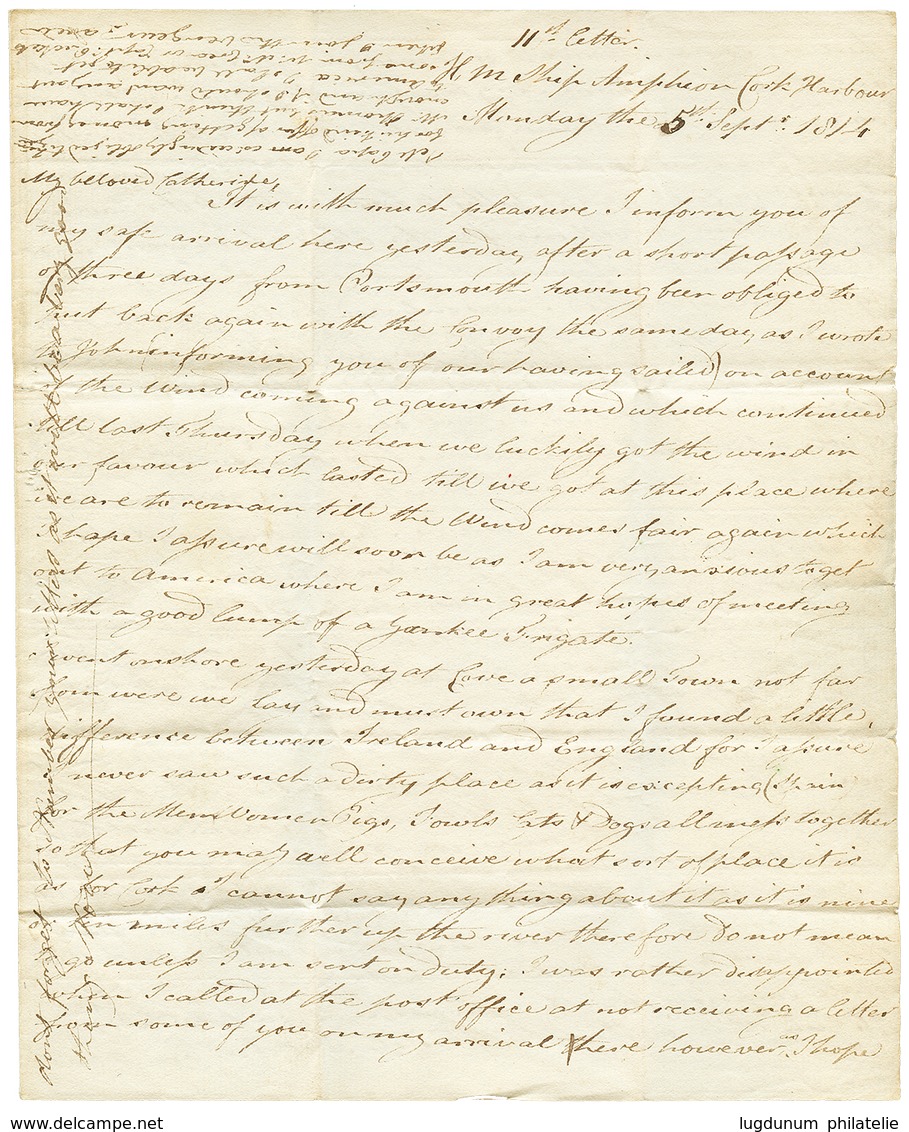 11th Letter.
H M Ship Amphion Cork Harbour
Monday the 5th Septr. 1814
My beloved Catherine,
It is with much pleasure I inform you of
my safe arrival here yesterday after a short passage
of three days from Portsmouth having been obliged to
put back again with the Convoy the same day as I wrote
to John (informing you of our having sailed) on account
of the Wind coming against us and which continued
till last Thursday when we luckily got the wind in
our favour which lasted till we got at this place where
we are to remain till the Wind comes fair again which
I hope I assure will soon be as I am very anxious to get
out to America where I am in great hopes of meeting
with a good lump of a Yankee Frigate.
I went onshore yesterday at Cove a small Town not far
from were we lay and must own that I found a little
difference between Ireland and England for I assure
I never saw such a dirty place as it is excepting (Spain
for the Men Women Pigs, Fowls Cats & Dogs all mess together
so that you may well conceive what sort of place it is
as for Cork I cannot say any thing about it as it is nine
or ten miles further up the river therefore Do not mean
to go unless I am sent on duty; I was rather disappointed
when I called at the post office at not receiving a letter
from some of you on my arrival here however as I hope
dont forget to number your letters as it will be a very good
thing
delcampe.net
lugdunum philatelie